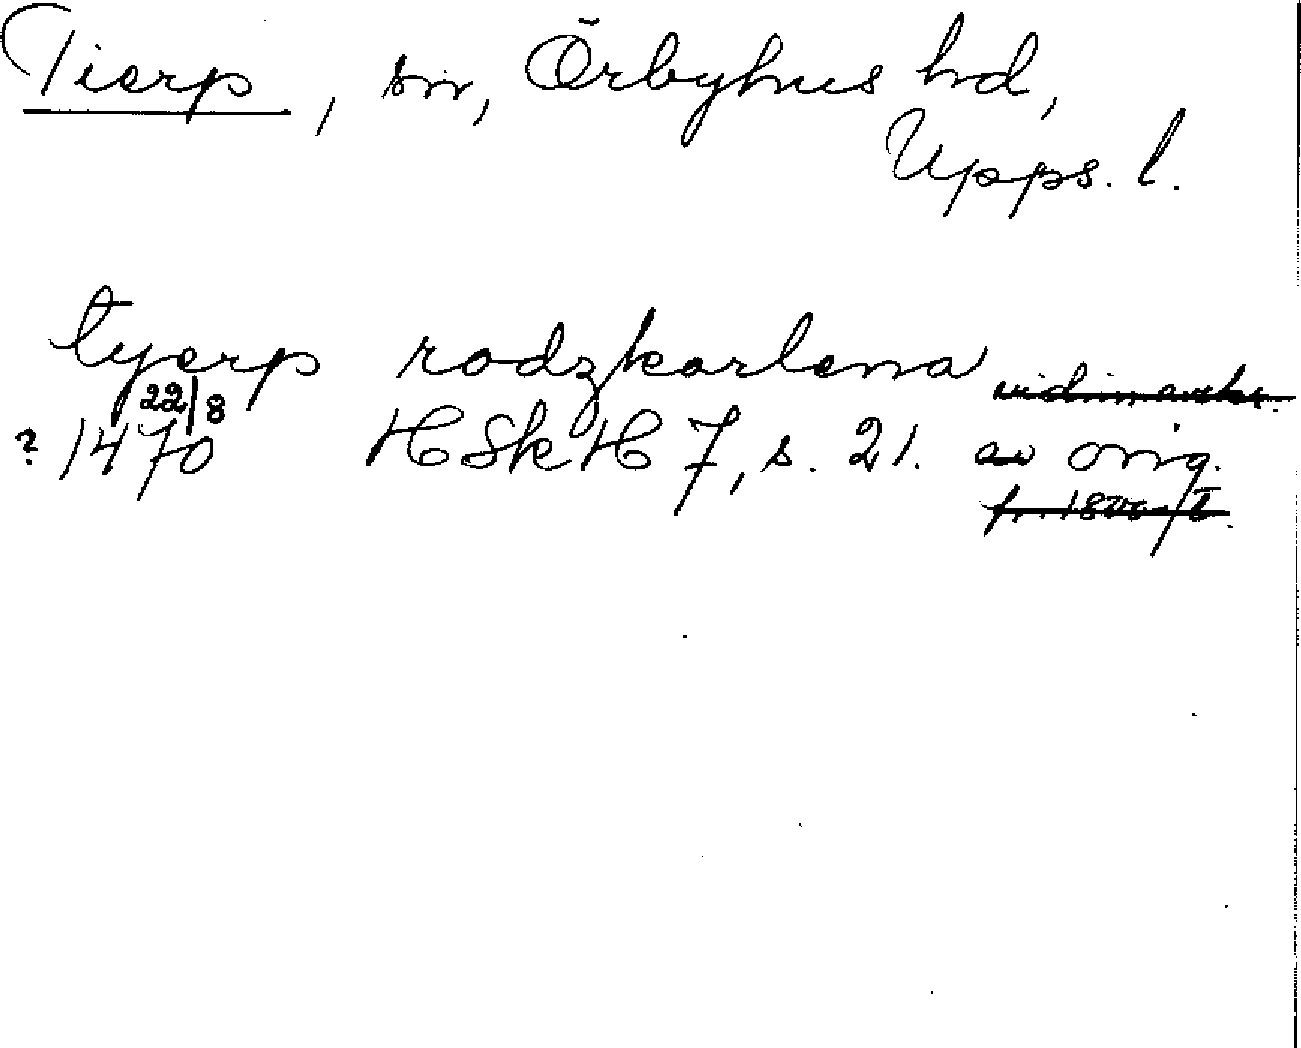 Tierp, sn, Örbyhus hd,
Upps. l.
tyerp rodzkarlena
22/8
? 1470 HSkH 7, s. 21. av orig.